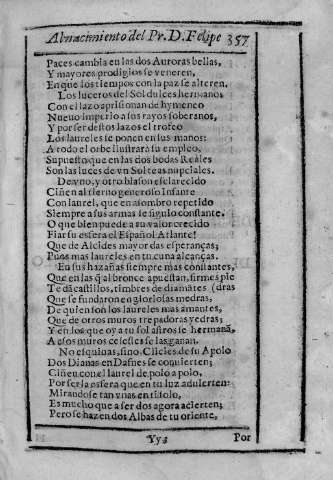 Al nacimiento del Pr. D. Felipe 357
Pazes cambia en las dos Auroras bellas,
Y mayores prodigios se veneren,
En que los tiempos con la paz se alteren.
Los luceros del Sol dulces hermanos
Con el lazo aprisionan de hymeneo
Nueuo imperio a sus rayos soberanos,
Y por ser destos lazos el trofeo
Los laureles se ponen en sus manos:
A todo el orbe ilustrarà tu empleo,
Supuesto que en las dos bodas Reales
Son las luces de vn Sol teas nupciales.
De vno, y otro blason esclarecido
Ciñen al tierno generoso Infante
Con laurel, que en asombro repetido
Siempre a sus armas se siguio constante.
O que bien puede a tu valor crecido
Fiar su esfera el Español Atlante!
Que de Alcides mayor das esperanças;
Pues mas laureles en tu cuna alcanças.
En sus hazañas siempre mas constantes,
Que en las q̃ al bronce apuestan, firmes pie
Te dà castillos, timbres de diamãtes (dras
Que se fundaron en gloriosas medras,
De quien son los laureles mas amantes,
Que de otros muros trepadoras yedras;
Y en los que oy a tu sol astros se hermanã,
A esos muros celestes se las ganan.
No esquiuas, sino Clicies de su Apolo
Dos Dianas en Dafnes se conuierten;
Ciñeu con el laurel de polo a polo,
Por ser la esfera que en tu luz adulerten:
Mirandose tan vnas en si solo,
Es mucho que a ser dos agora acierten;
Pero se hazen dos Albas de tu oriente,
Yy 3 Por